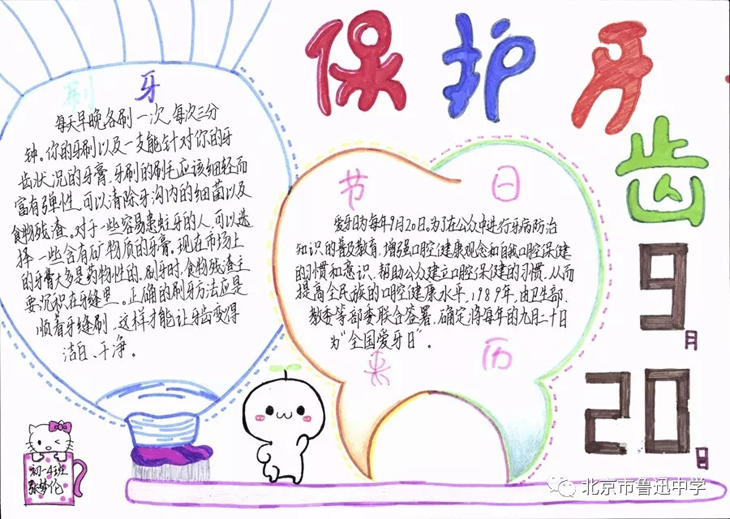 保护牙齿
9月
20日
刷牙
每天早晚各刷一次,每次三分
钟。你的牙刷以及一支能针对你的牙
齿状况的牙膏,牙刷的刷毛应该细轻而
富有弹性,可以清除牙沟内的细菌以及
食物残渣。对于一些容易患蛀牙的人,可以选
择一些含有矿物质的牙膏。现在市场上
的牙膏大多是药物性的,刷牙时,食物残渣主
要沉积在牙缝里。正确的刷牙方法应是
顺着牙缝刷,这样才能让牙齿变得
洁白、干净。
节日
爱牙日为每年9月20日。为了在公众中进行牙病防治
知识的普及教育,增强口腔健康观念和自我口腔保健
的习惯和意识,帮助公众建立口腔保健的习惯,从而
提高全民族的口腔健康水平,1989年,由卫生部、
教委等部委联合签署,确定将每年的九月二十日
为“全国爱牙日”。
来历
初一4班
张梦伦
北京市鲁迅中学